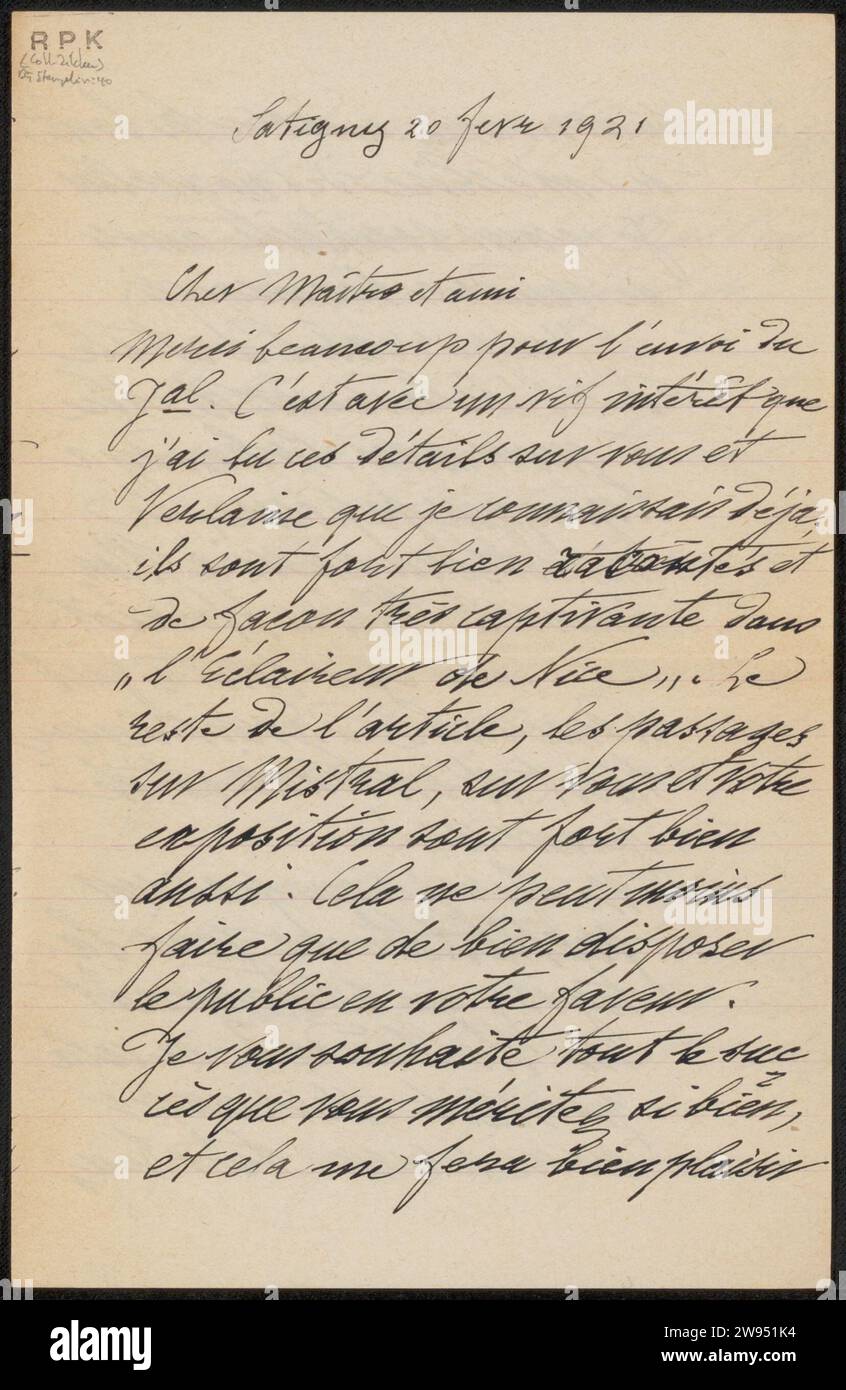 RPK
(Coll. Zilcken)
Satigny 20 fevr 1921
Cher Maître et ami
Merci beaucoup pour l'envoi du
Jal. C'est avec un vif intérêt que
j'ai lu ces détails sur vous et
Verlaine que je connaissais déjà,
ils sont fort bien racontés et
de façon très captivante dans
„l'Eclaireur de Nice„. Le
reste de l'article, les passages
sur Mistral, sur vous et votre
exposition sont fort bien
aussi. Cela ne peut moins
faire que de bien disposer
le public en votre faveur.
Je vous souhaite tout le suc
cès que vous méritez si bien,
et cela me fera bien plaisir
alamy
Image ID: 2W951K4
www.alamy.com